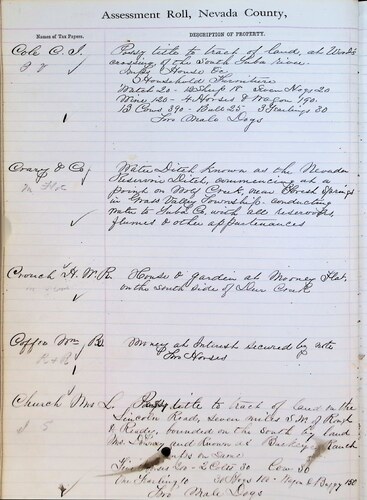 Assessment Roll, Nevada County,
Names of Tax Payers.
DESCRIPTION OF PROPERTY.
Cole C. I. Possy title to tract of land, at Woods
crossing of the South Yuba river
Imps House &c
Household Furniture
Watch 20 - 12 Sheep 18 Seven Hogs 20
Wine 120 - 4 Horses & Wagon 190.
13 Cows 390 - Bull 25 3 Yearlings 30
Two Male Dogs
Crary & Co Water Ditch known as the Nevada
Reservoir Ditch, commencing at a
point on Wolf Creek, near Springs
in Grass Valley Township, conducting
water to Yuba Co. with all reservoirs,
flumes & other appurtenances
Crouch H. W. R. House & garden at Mooney Flat
on the south side of Deer Creek
Coffin Wm B. Money at Interest secured by note
R + R Two Horses
Church Mrs L. Possy title to tract of land on the
Lincoln Road, seven miles S.W. of Rough
& Ready, bounded on the south by land
Mrs and known as Ranch
on same
20 - 2 Colts 30 Cow 30
One Yearling 10 Hogs Wagon & Buggy 150
Two Male Dogs